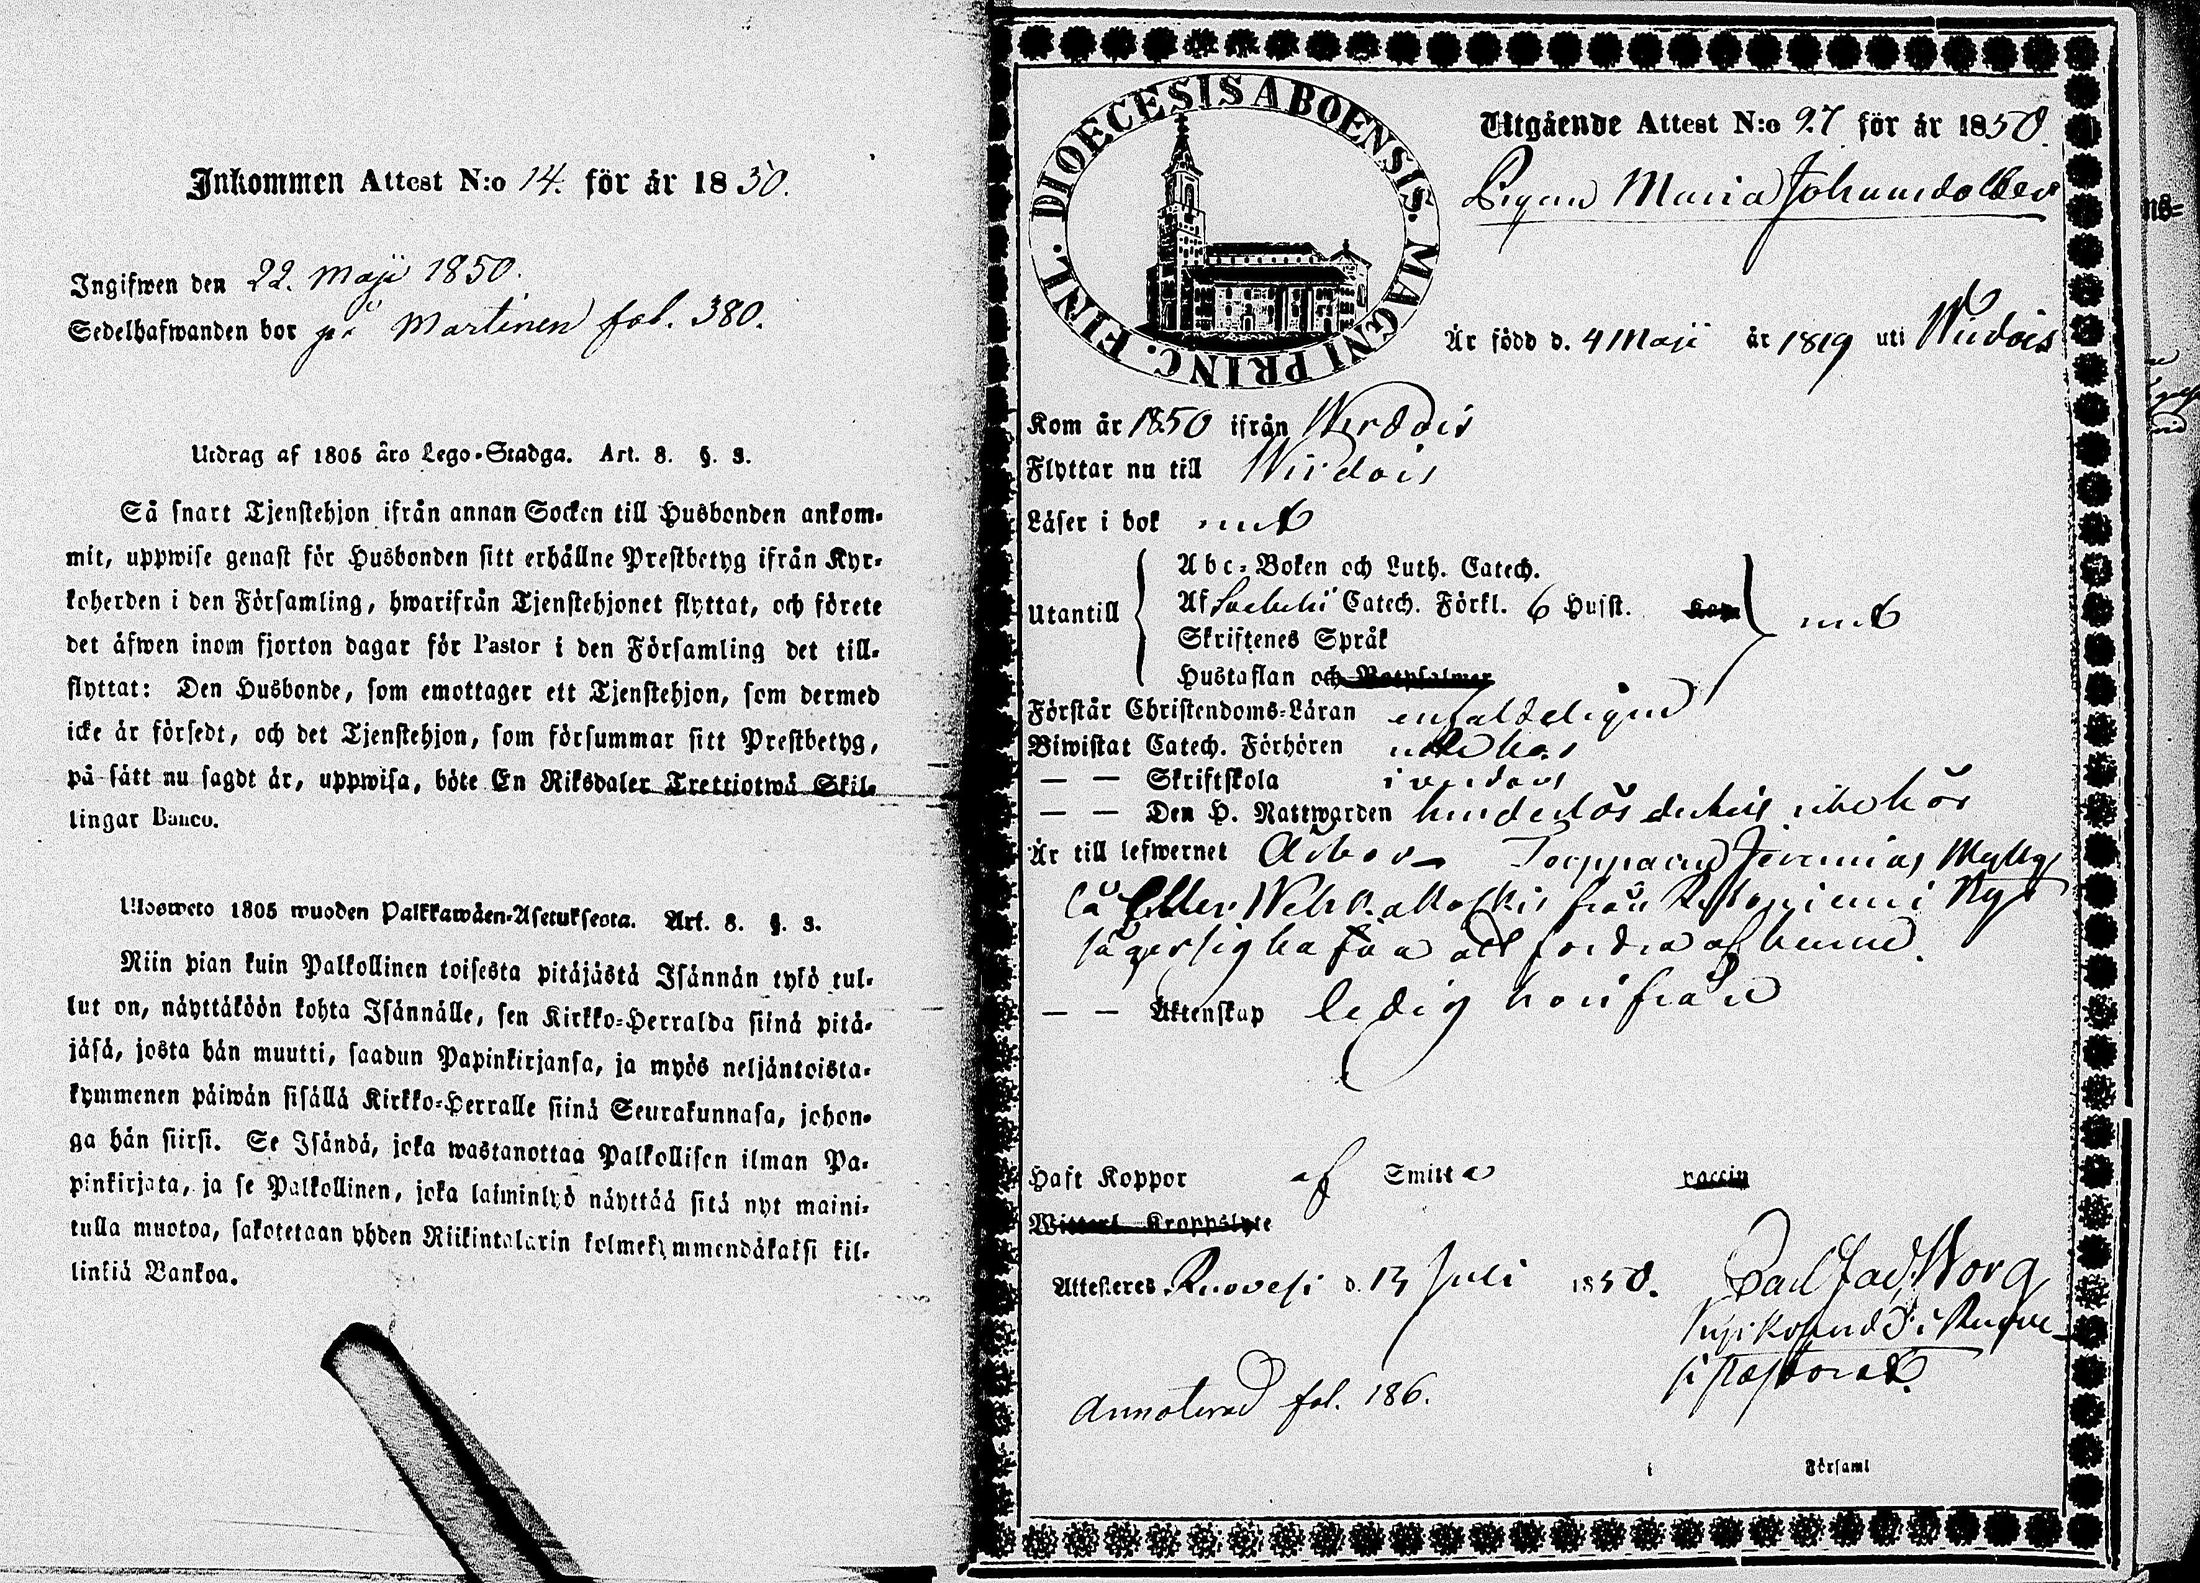 Inkommen Attest N:o 14. för år 1850.
Ingifwen den 22. Maji 1850.
Sedelhafwanden bor på Martinen fol. 380.
Utdrag af 1805 års Lego-Stadga. Art. 8. §. 3.
Så snart Tjenstehjon ifrån annan Socken till Husbonden ankom-
mit, uppwise genast för Husbonden sitt erhållne Prestbetyg ifrån Kyr-
koherden i den Församling, hwarifrån Tjenstehjonet flyttat, och förete
det äfwen inom fjorton dagar för Pastor i den Församling det till-
flyttat: Den Husbonde, som emottager ett Tjenstehjon, som dermed
icke är försedt, och det Tjenstehjon, som försummar sitt Prestbetyg,
på sätt nu sagdt är, uppwisa, böte En Riksdaler Trettiotwå Skil-
lingar Banco.
Ulosweto 1805 wuoden Palkkawäen-Asetuksesta. Art. 8. §. 3.
Niin pian kuin Palkollinen toisesta pitäjästä Isännän tykö tul-
lut on, näyttäköön kohta Isännälle, sen Kirkko-Herralda siinä pitä-
jäsä, josta hän muutti, saadun Papinkirjansa, ja myös neljäntoista-
kymmenen päiwän sisällä Kirkko-Herralle siinä Seurakunnasa, johon-
ga hän siirsi. Se Isändä, joka wastanottaa Palkollisen ilman Pa-
pinkirjata, ja se Palkollinen, joka laiminlyö näyttää sitä nyt maini-
tulla muotoa, sakotetaan yhden Riikintalarin kolmekymmendäkaksi kil-
linkiä Bankoa.
DIOECESIS ABOENSIS. MAGNI PRINC. FINL.
Utgående Attest N:o 97 för år 1850.
Pigan Maria Johansdotter
Är född d. 4 Maji år 1819 uti Wirdois
Kom år 1850 ifrån Wirdois
Flyttar nu till Wirdois
Läser i bok nöt
Utantill
Abc-Boken och Luth. Catech.
Af Catech. Förkl. 6 Hufst.
Skriftenes Språk
Hustaflan och Botpsalmer
Förstår Christendoms-Läran enfaldeligen
Biwistat Catech. Förhören
— — Skriftskola
— — Den H. Nattwarden hinderlös
Är till lefwernet Torpparen Jeremias
från
att fordra af henne.
— — Äktenskap ledig härifrån
Haft Koppor af Smitta vaccin
Wittert. Kroppslyte
Attesteres Ruovesi d. 13 Juli 1850.
Annoterad fol. 186.
i Församl